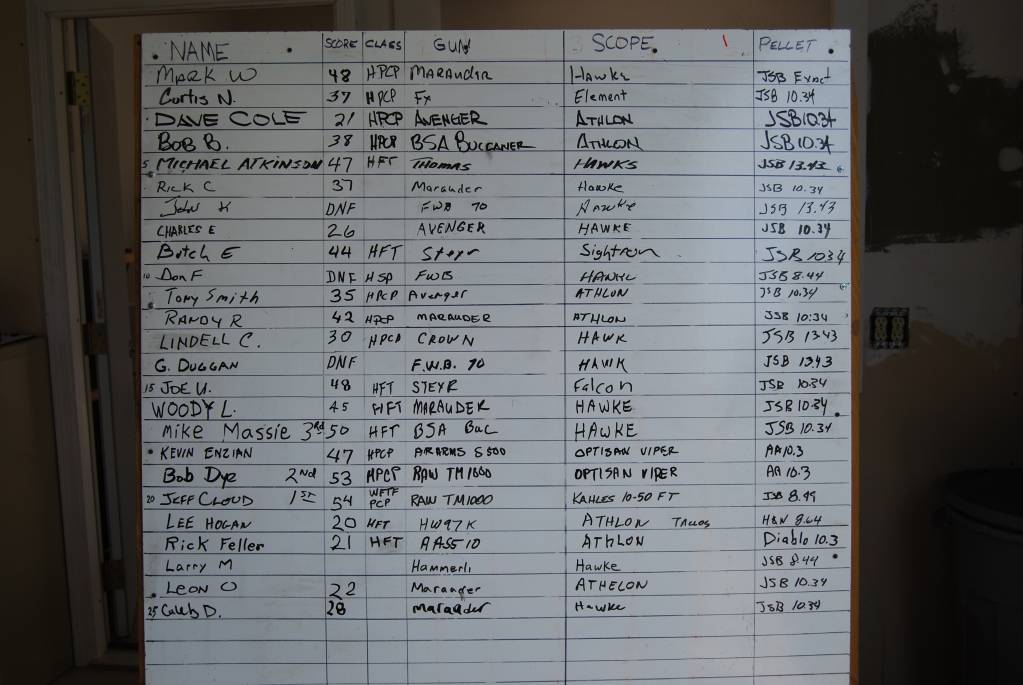 NAME SCORE CLASS GUN SCOPE PELLET
MARK W 48 HPCP MARAUDER Hawke JSB Exact
Curtis N. 37 HPCP Fx Element JSB 10.34
DAVE COLE 21 HPCP AVENGER ATHLON JSB 10.34
BOB B. 38 HPCP BSA BUCCANER ATHLON JSB 10.34
5 MICHAEL ATKINSON 47 HFT THOMAS HAWKS JSB 13.43
RICK C 37 Marauder Hawke JSB 10.34
John K DNF FWB 70 Hawke JSB 13.43
CHARLES E 26 AVENGER HAWKE JSB 10.34
Butch E 44 HFT Steyr Sightron JSB 1034
10 Don F DNF FWB HAWKE JSB 8.44
Tony Smith 35 HPCP Avenger ATHLON JSB 10.34
RANDY R 42 HPCP MARAUDER ATHLON JSB 10.34
LINDELL C. 30 HPCP CROWN HAWK JSB 1343
G. DUGGAN DNF F.W.B. 70 HAWK JSB 1343
15 JOE U. 48 HFT STEYR Falcon JSB 10.34
WOODY L. 45 HFT MARAUDER HAWKE JSB 10.34
Mike Massie 3rd 50 HFT BSA Buc HAWKE JSB 10.34
KEVIN ENZIAN 47 HPCP AR ARMS S500 OPTISAN VIPER AA10.3
Bob Dye 2nd 53 HPCP RAW TM1000 OPTISAN VIPER AA 10.3
20 JEFF CLOUD 1ST 54 WFTF PCP RAW TM1000 KAHLES 10-50 FT JSB 8.44
LEE HOGAN 20 HFT HW97K ATHLON TALOS H&N 8.64
Rick Feller 21 HFT AAS510 ATHLON Diablo 10.3
Larry M Hammerli Hawke JSB 8.44
LEON O 22 Marauder ATHELON JSB 10.34
25 Caleb D. 28 marauder Hawke JSB 10.34